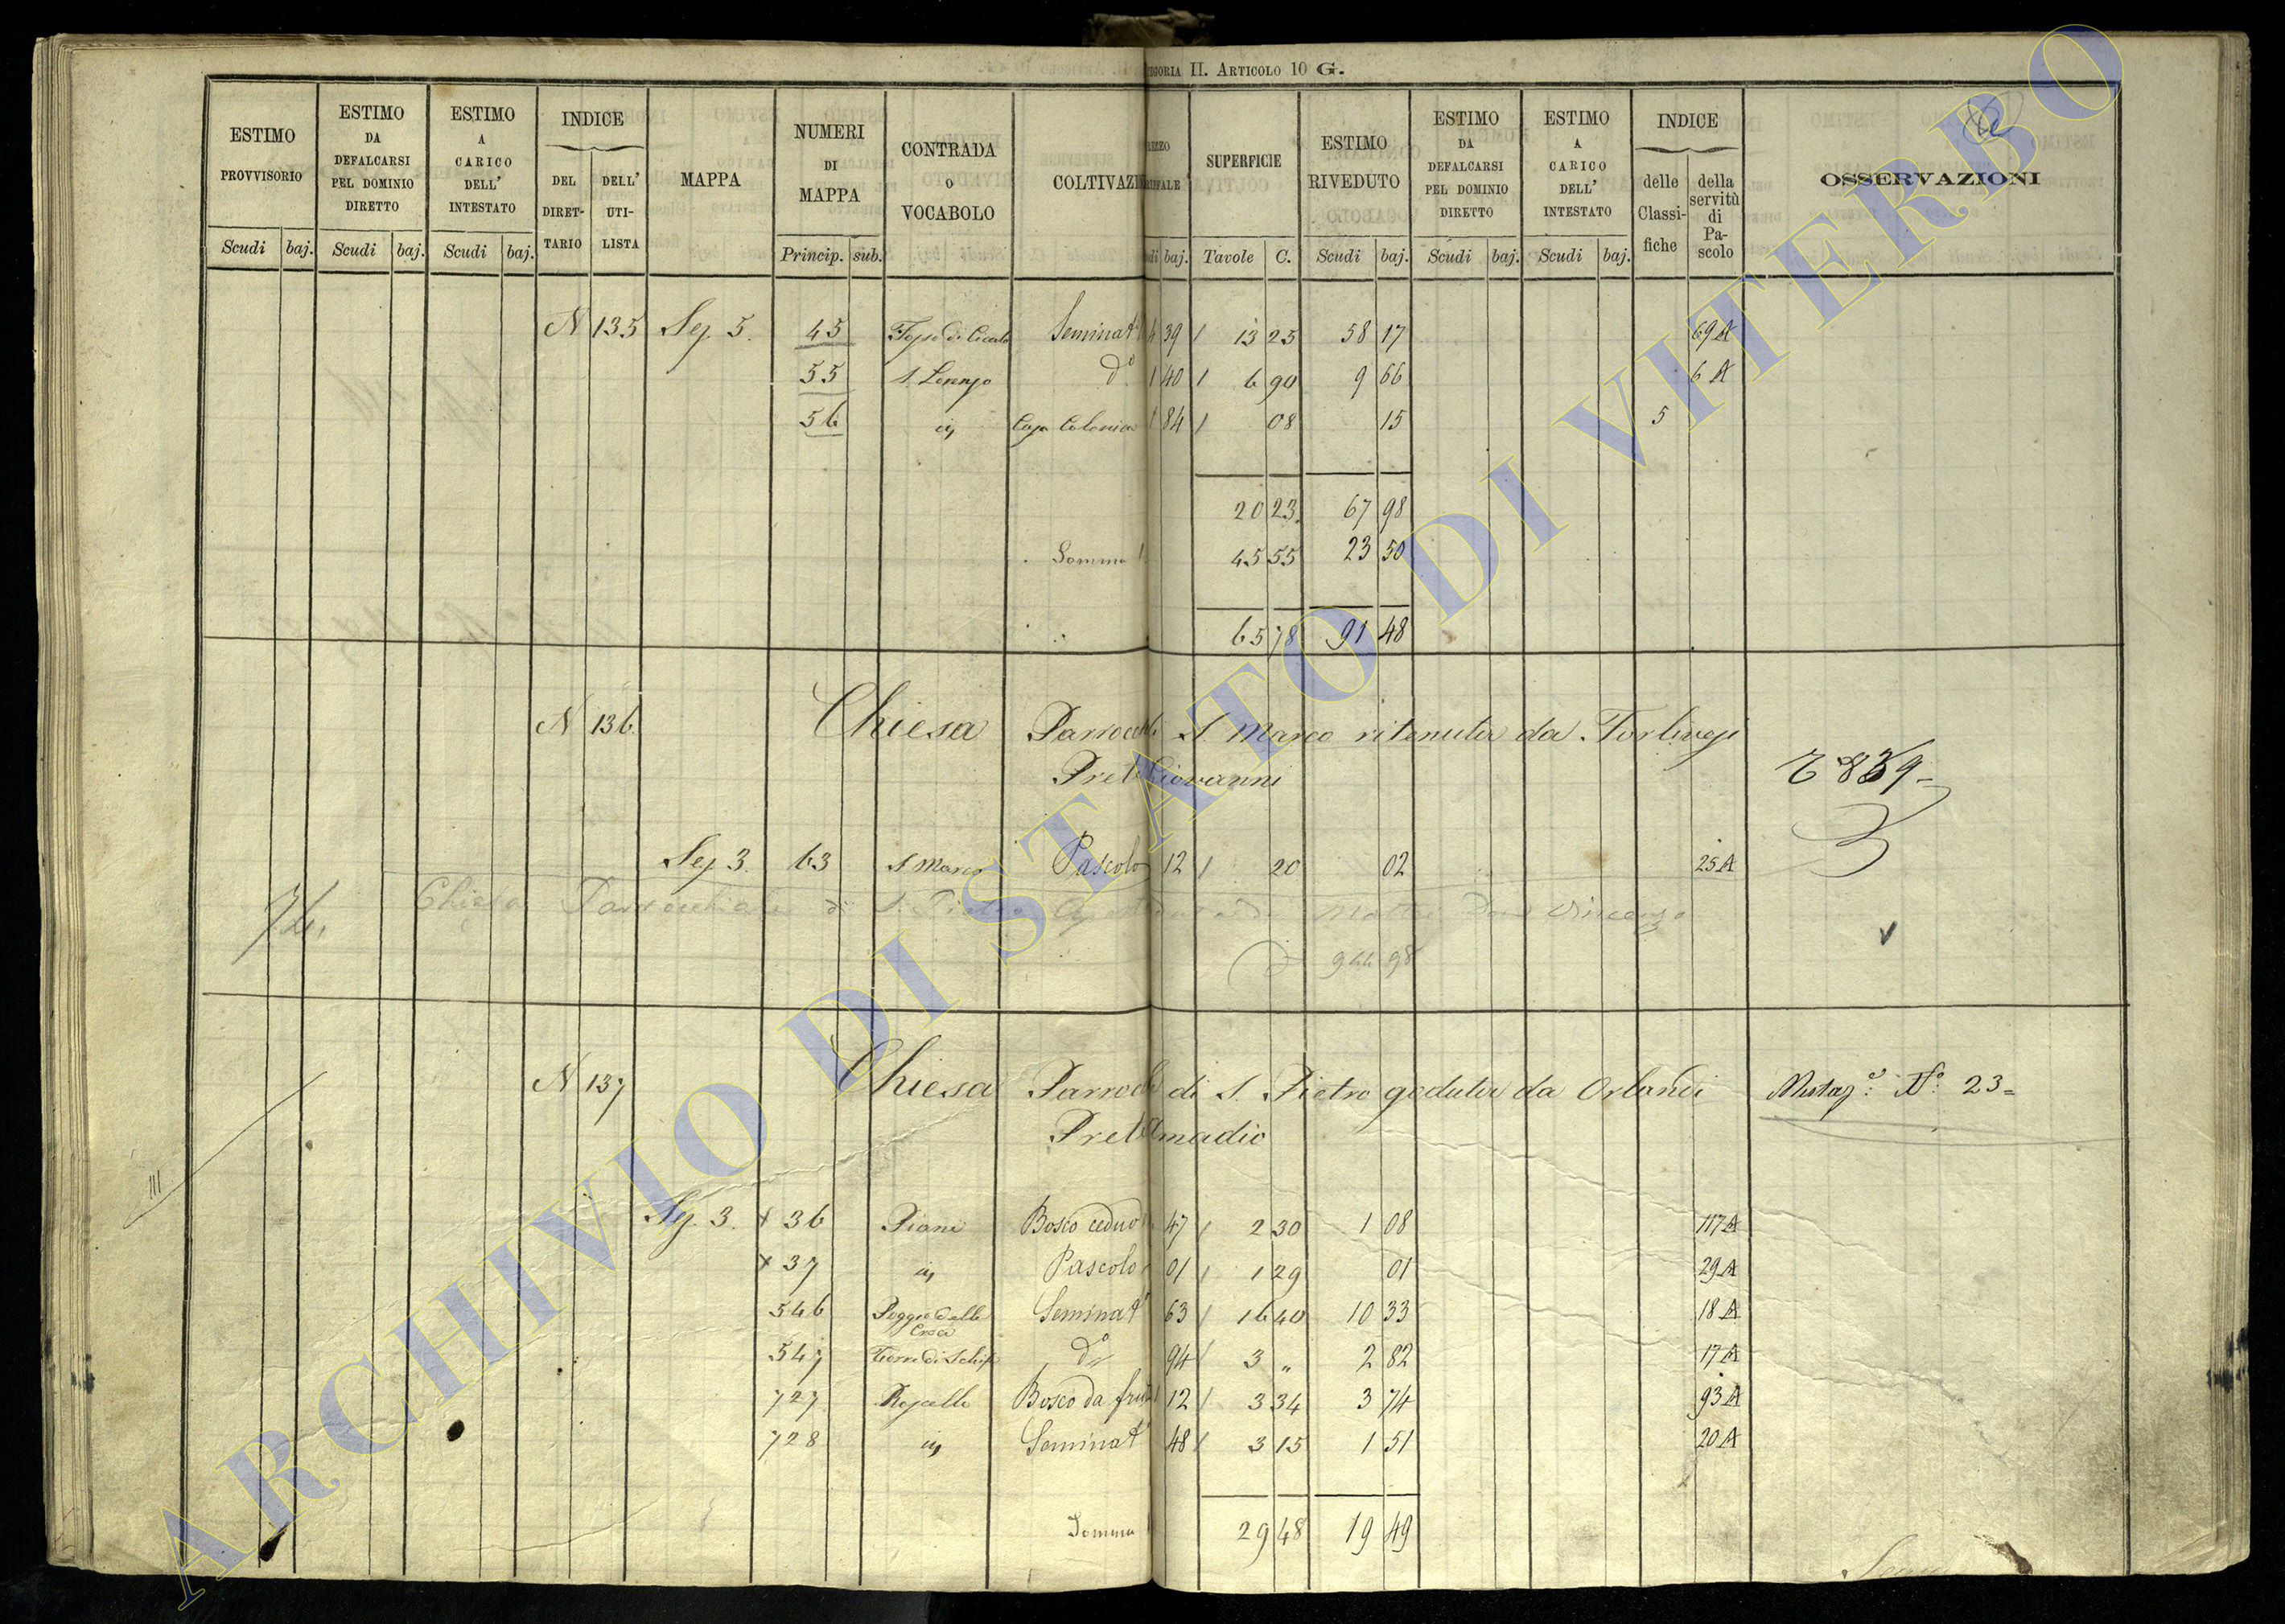 II. ARTICOLO 10 G.
ESTIMO PROVVISORIO Scudi baj.
ESTIMO DA DEFALCARSI PEL DOMINIO DIRETTO Scudi baj.
ESTIMO A CARICO DELL' INTESTATO Scudi baj.
INDICE DEL DIRET-TARIO DELL' UTI-LISTA
MAPPA
NUMERI DI MAPPA Princip. sub.
CONTRADA O VOCABOLO
COLTIVAZI
baj.
SUPERFICIE Tavole C.
ESTIMO RIVEDUTO Scudi baj.
ESTIMO DA DEFALCARSI PEL DOMINIO DIRETTO Scudi baj.
ESTIMO A CARICO DELL' INTESTATO Scudi baj.
INDICE delle Classi-fiche della servitù di Pa-scolo
OSSERVAZIONI
N 135 Sez. 5. 45 Seminat 4 39 13 25 58 17 69 A
55 S. Lorenzo d.o 1 40 6 90 9 66 6 A
56 in Casa Colonica 1 84 08 15 5
20 23 67 98
Somma 45 55 23 50
65 78 91 48
N 136 Chiesa Parrocch S. Marco ritenuta da Torlivegi
Prete Giovanni
Sez. 3. 63 S. Marco Pascolo 12 20 02 25 A
Chiesa Parrocchiale di S. Pietro Mattei Don Vincenzo
944 98
N 137 Chiesa Parroch di S. Pietro goduta da Orlandi N.o 23
Prete Amadio
III
Sez. 3. x 36 Piani Bosco ceduo 47 2 30 1 08 117 A
x 37 in Pascolo 01 1 29 01 29 A
546 Poggio delle Seminat 63 16 40 10 33 18 A
547 d.o 94 3 „ 2 82 17 A
727 Bosco da frut 1 12 3 34 3 74 93 A
728 in Seminat 48 3 15 1 51 20 A
Somma 29 48 19 49
ARCHIVIO DI STATO DI VITERBO